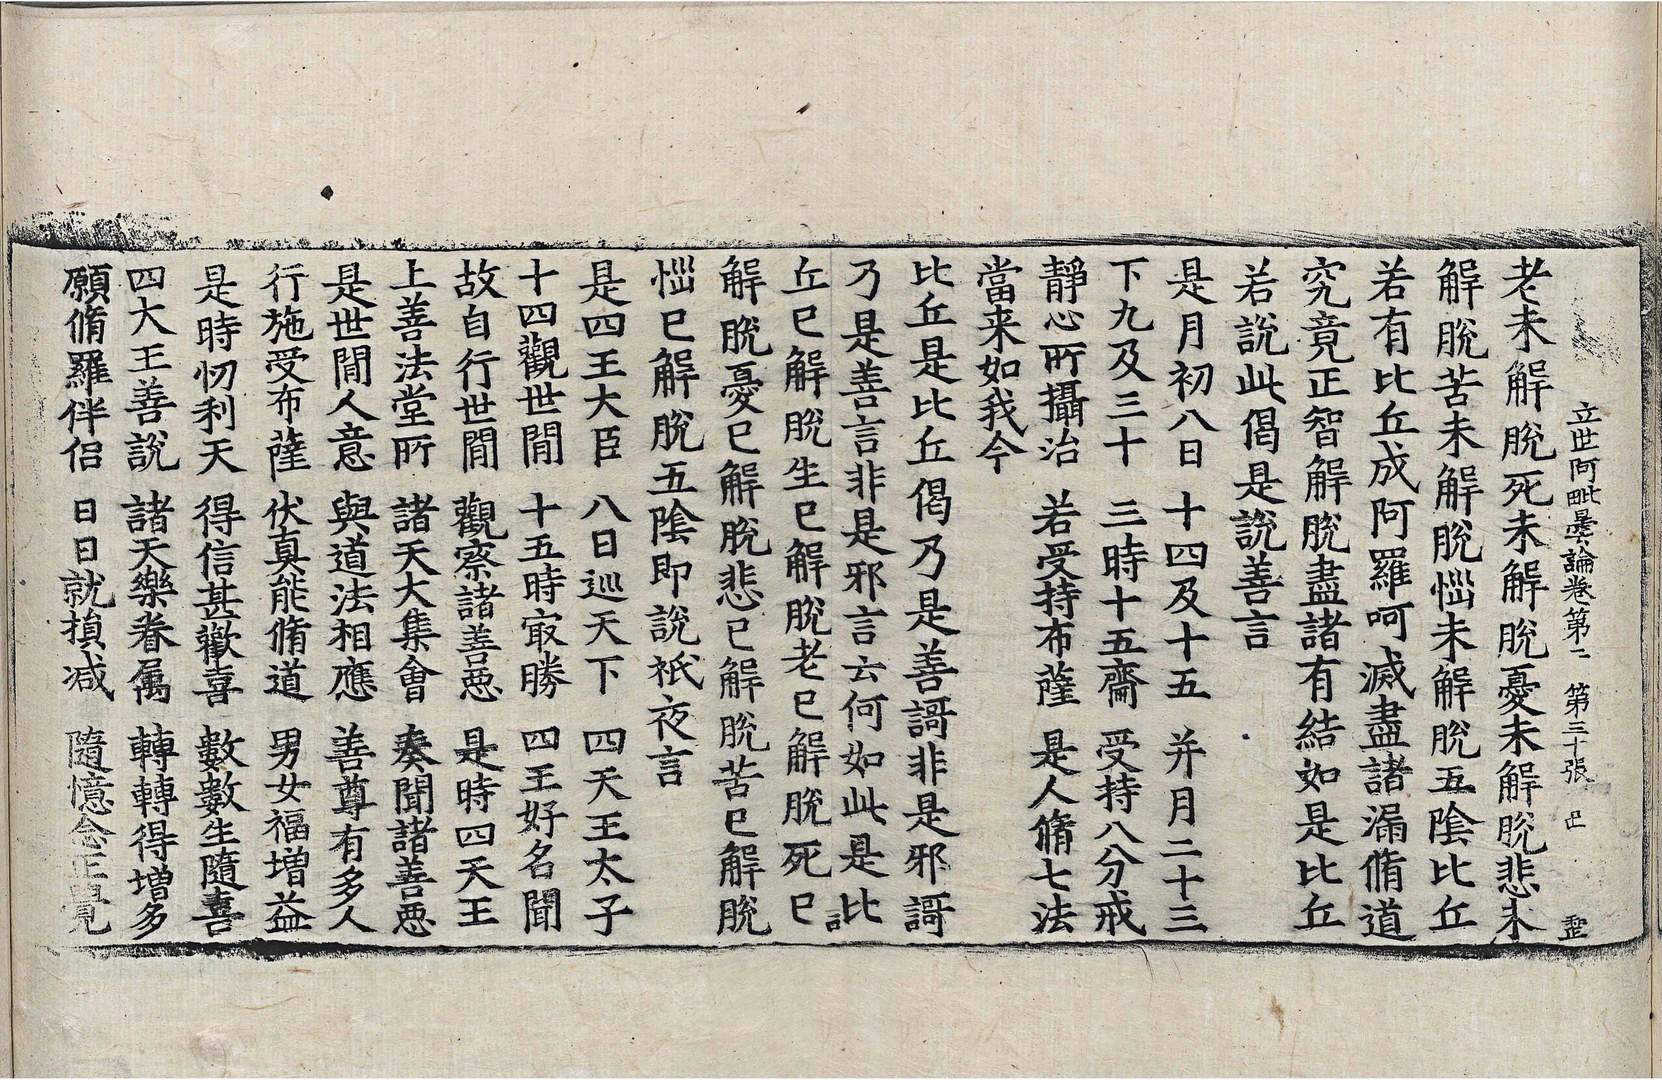 立世阿毗曇論卷第二 第三十張 㠯 聖
老未解脫死未解脫憂未解脫悲未
解脫苦未解脫惱未解脫五陰比丘
若有比丘成阿羅呵滅盡諸漏脩道
究竟正智解脫盡諸有結如是比丘
若說此偈是說善言
是月初八日 十四及十五 并月二十三
下九及三十 三時十五齋 受持八分戒
靜心所攝治 若受持布薩 是人脩七法
當来如我今
比丘是比丘偈乃是善謌非是邪謌
乃是善言非是邪言云何如此是比
丘已解脫生已解脫老已解脫死已
解脫憂已解脫悲已解脫苦已解脫
惱已解脫五陰即說祇夜言
是四王大臣 八日巡天下 四天王太子
十四觀世間 十五時㝡勝 四王好名聞
故自行世間 觀察諸善惡 是時四天王
上善法堂所 諸天大集會 奏聞諸善惡
是世間人意 與道法相應 善尊有多人
行施受布薩 伏真能脩道 男女福增益
是時忉利天 得信甚歡喜 數數生隨喜
四大王善說 諸天樂眷属 轉轉得增多
願脩羅伴侣 日日就損减 隨憶念正覺